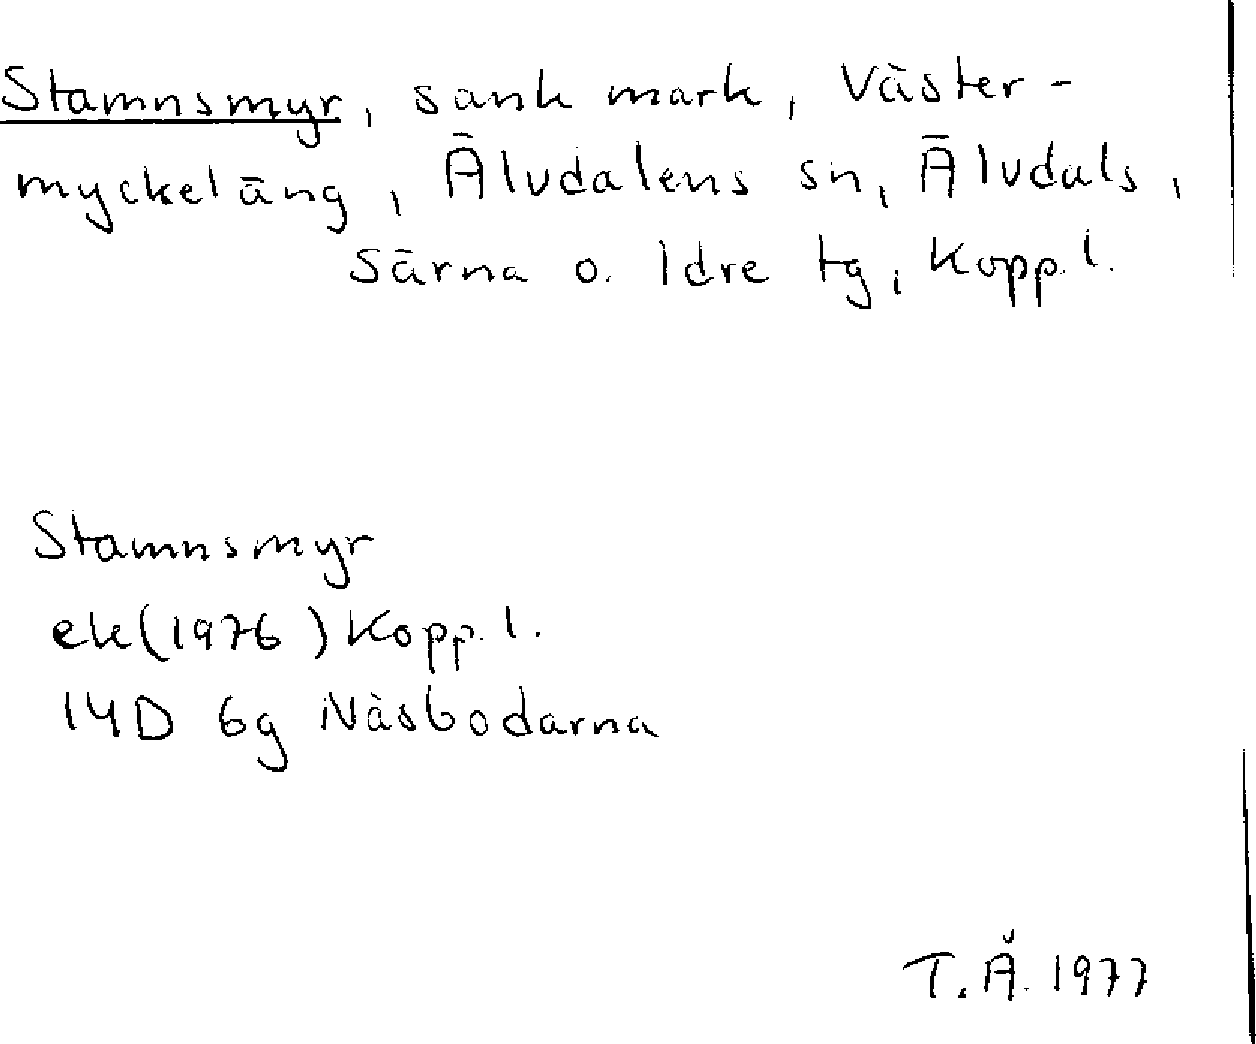 Stamnsmyr, sank mark, Väster-
myckeläng, Älvdalens sn, Älvdals,
Särna o. Idre tg, Kopp.l.
Stamnsmyr
ek(1976) Kopp.l.
14D 6g Näsbodarna
T.Å. 1977